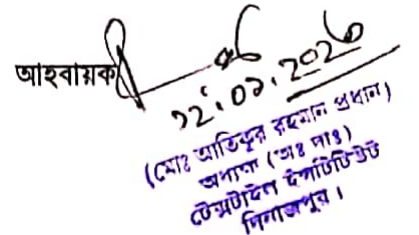 আহবায়ক
২২.০১.২০২৬
(মোঃ আতিকুর রহমান প্রধান)
অধ্যক্ষ (অঃ দাঃ)
টেক্সটাইল ইনস্টিটিউট
দিনাজপুর।